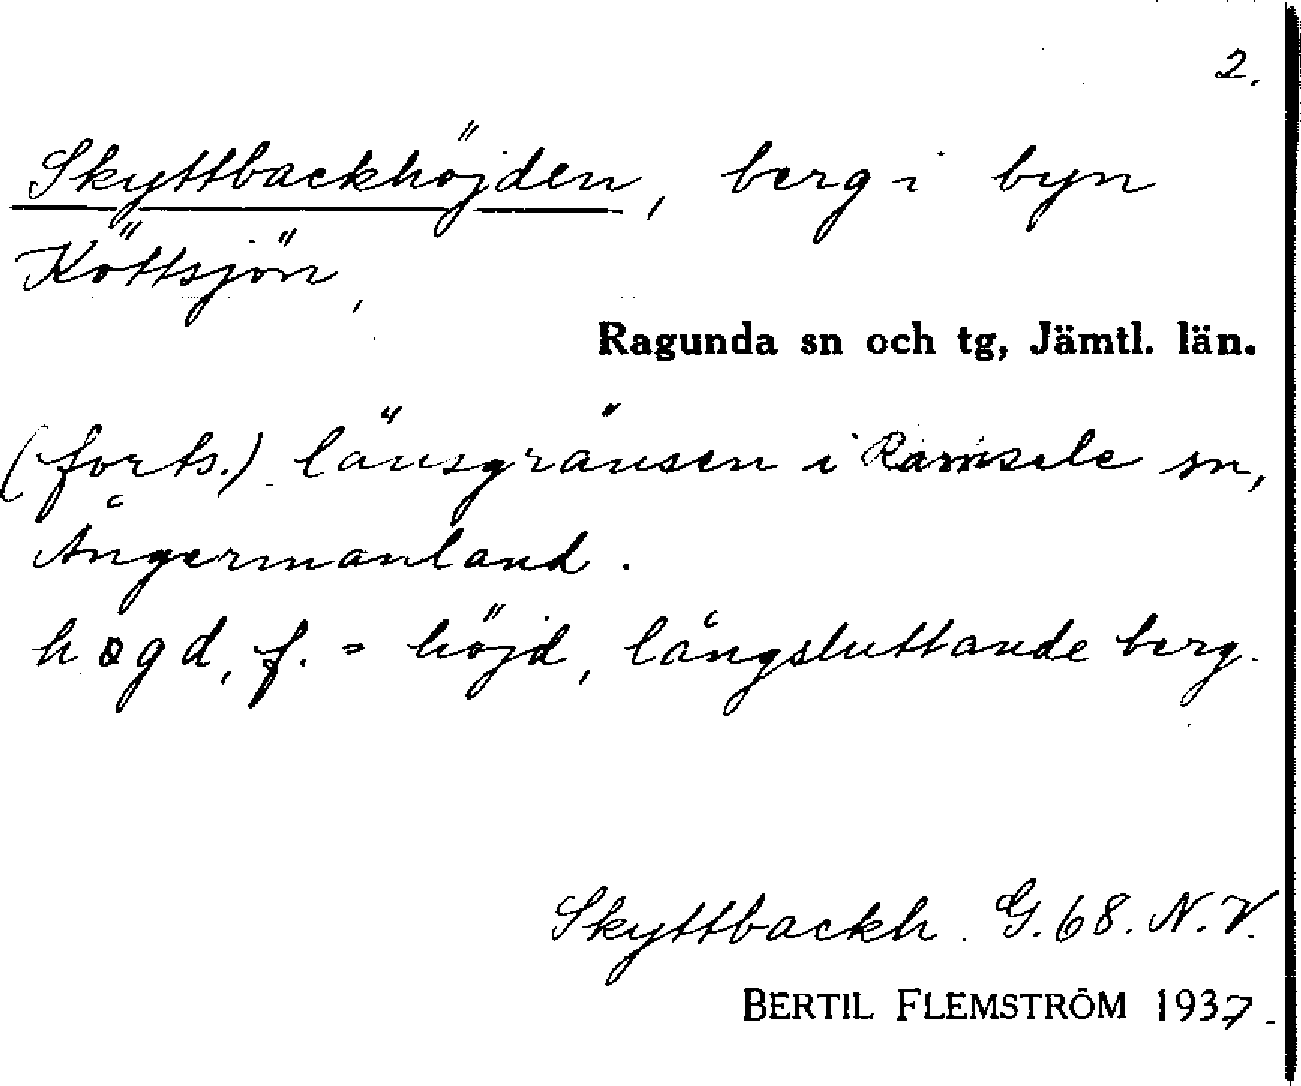 2.
Skyttbackhöjden, berg i byn
Köttsjön,
Ragunda sn och tg, Jämtl. län.
(forts.) länsgränsen i Ramsele sn,
Ångermanland.
høgd, f. = höjd, långsluttande berg.
Skyttbackh. G. 68. N. V.
BERTIL FLEMSTRÖM 1937.